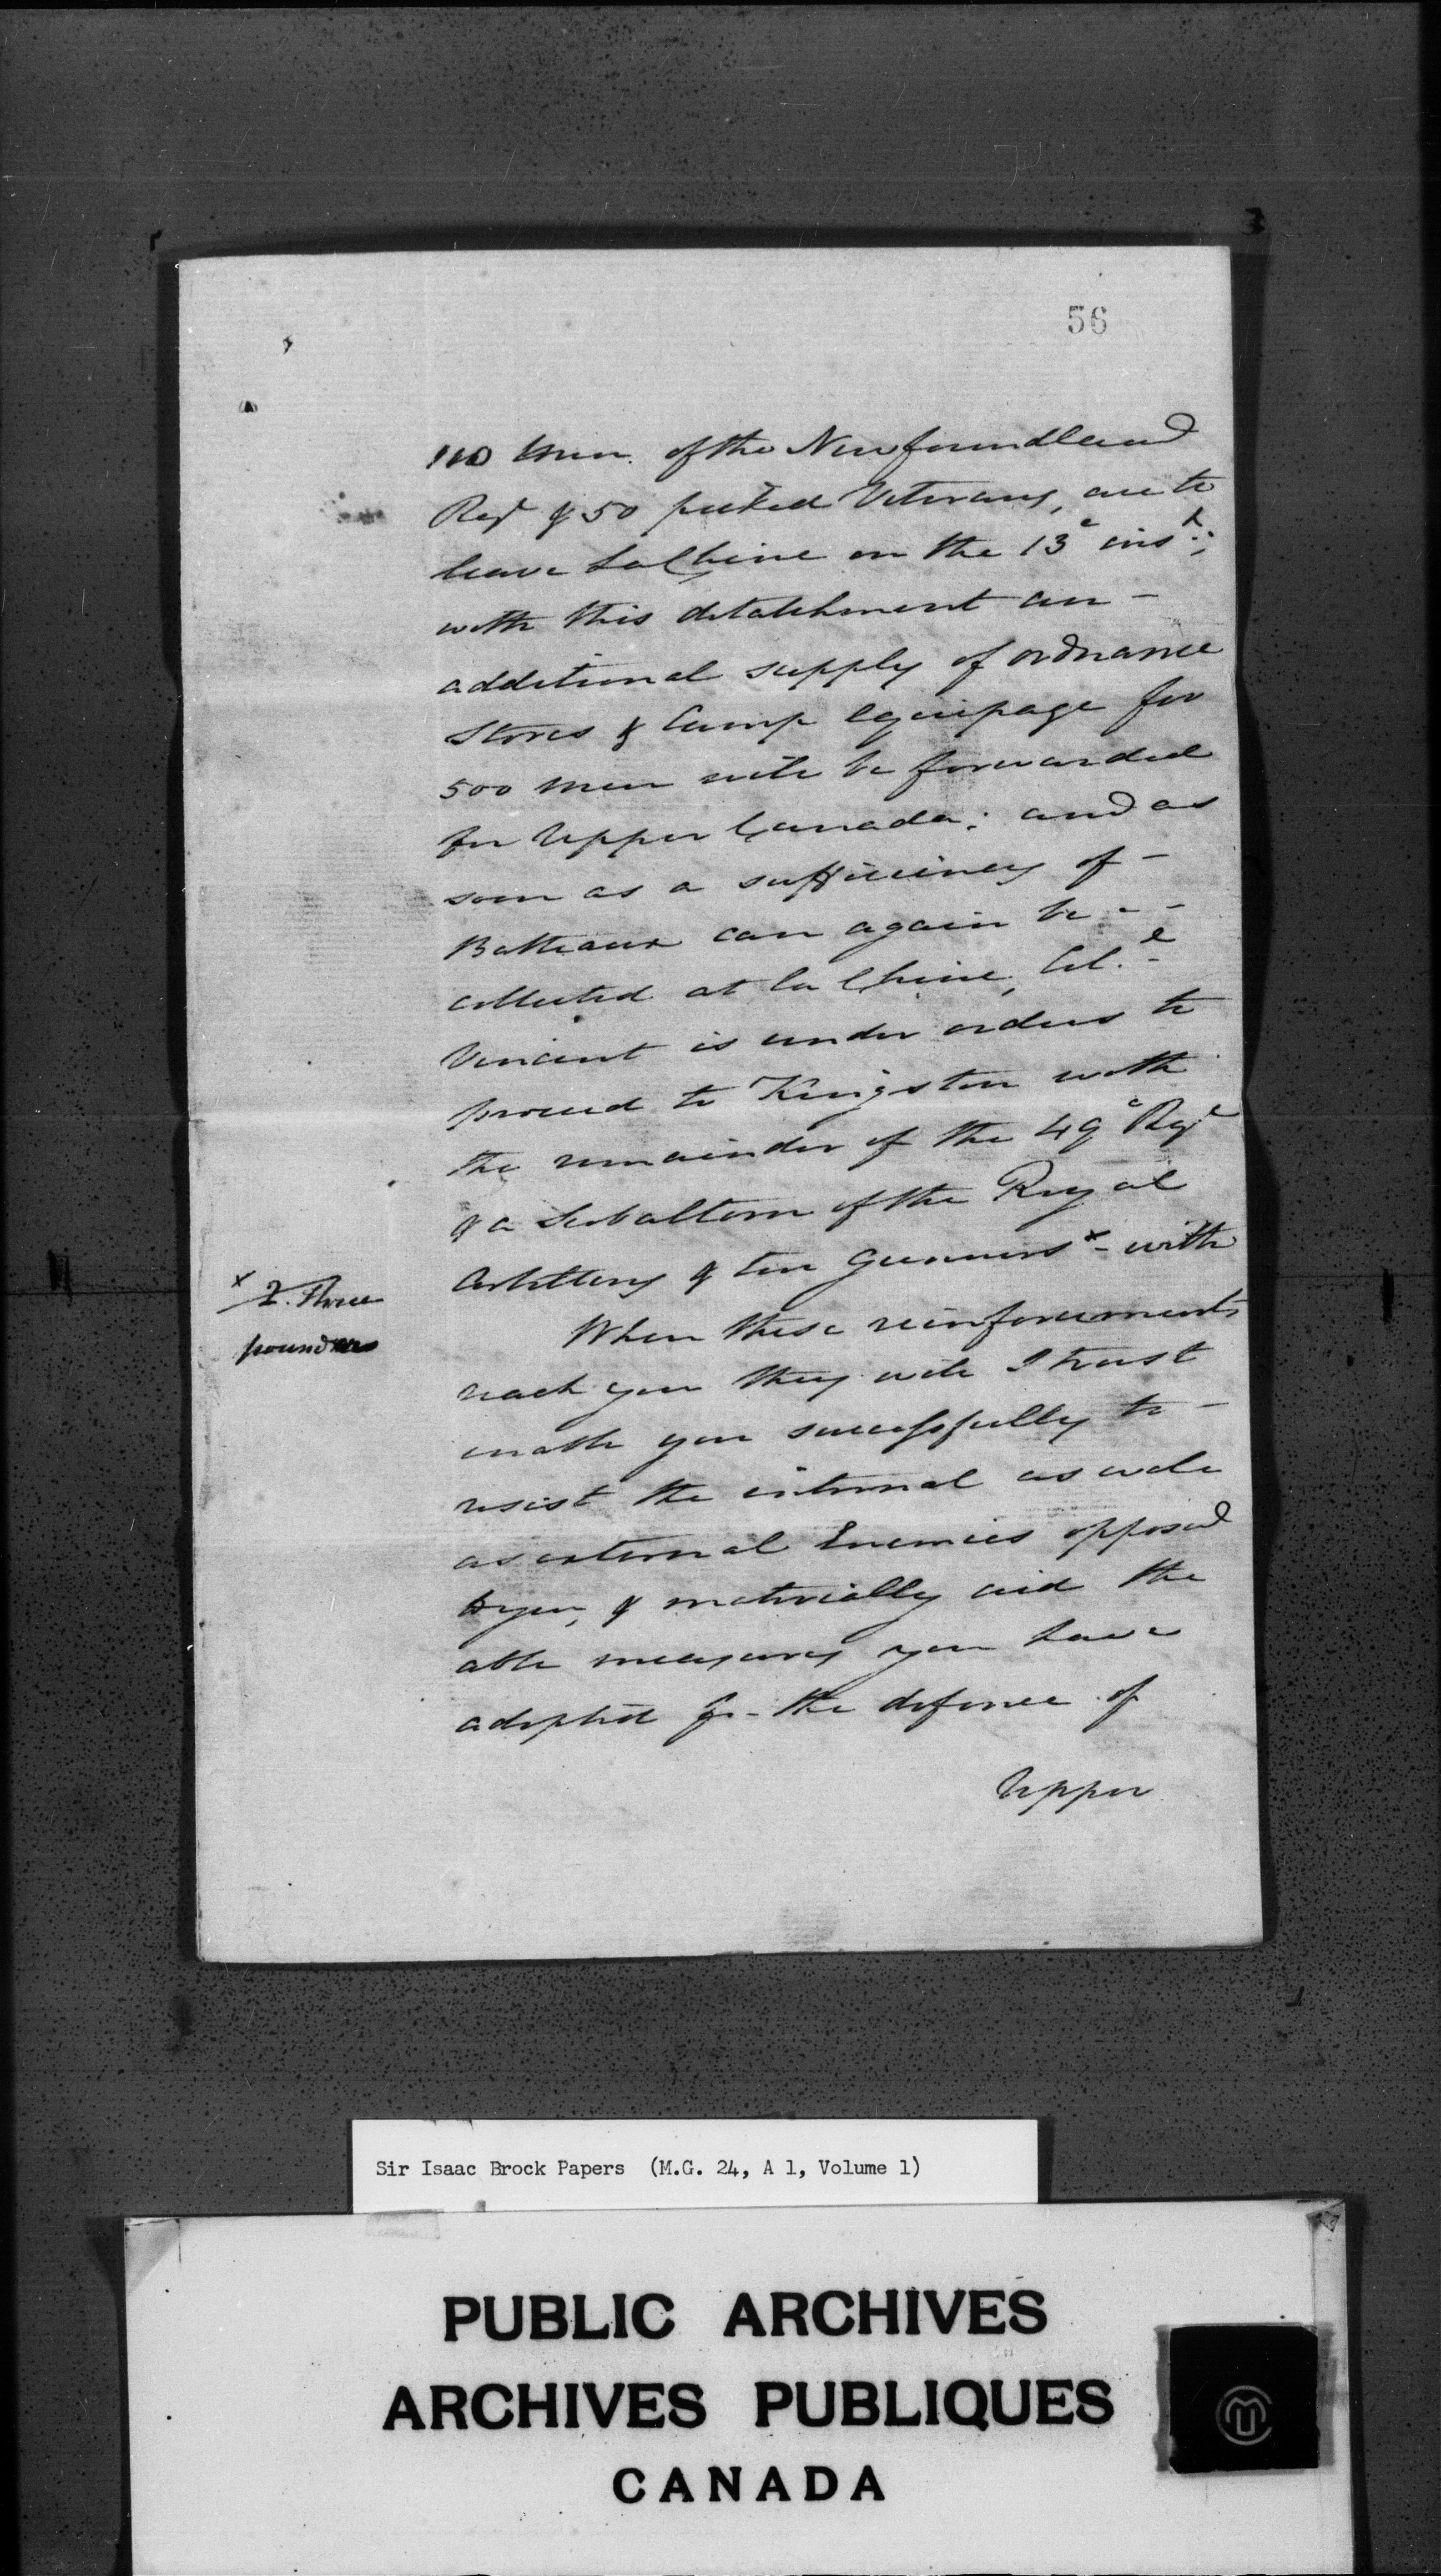 56
110 Men. of the Newfoundland
Regt & 50 picked Veterans, are to
leave La Chine on the 13e inst.;
with this detatchment an -
additional supply of ordnance
Stores & Camp Equipage for
500 men will be forwarded
for Upper Canada: and as
soon as a sufficiency of -
Batteaux can again be - -
collected at La Chine, Col.e -
Vincent is under orders to
proceed to Kingston with
the remainder of the 49e Regt
& a Subaltern of the Royal
Artillery & ten Gunners x - with
x 2. Three
pounders
When these reinforcements
reach you they will I trust
enable you successfully to -
resist the internal as well
as external Enemies opposed
to you, & materially aid the
able measures you have
adopted for - the defence of
Upper
Sir Isaac Brock Papers (M.G. 24, A 1, Volume 1)
PUBLIC ARCHIVES
ARCHIVES PUBLIQUES
CANADA